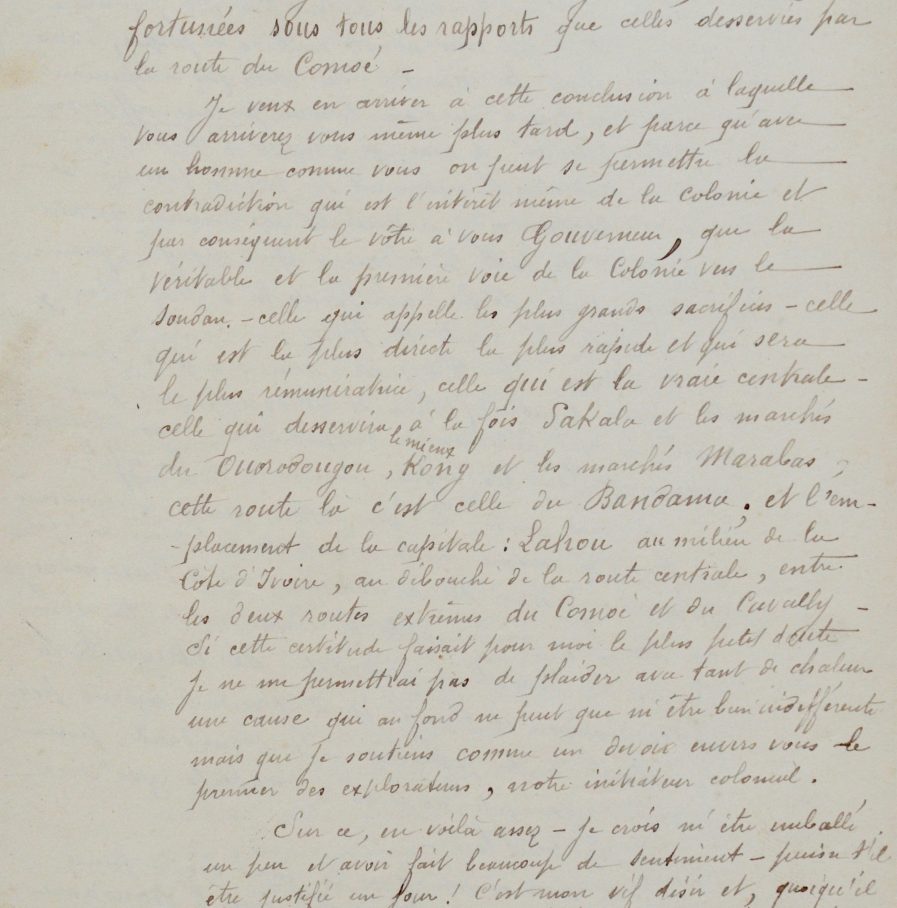 fortunées sous tous les rapports que celles desservies par
la route du Comoé -
Je veux en arriver à cette conclusion à laquelle
vous arriverez vous même plus tard, et parce qu'avec
un homme comme vous on peut se permettre la
contradiction qui est l'intérêt même de la colonie et
par conséquent le vôtre à vous Gouverneur, que la
véritable et la première voie de la Colonie vers le
Soudan. - celle qui appelle les plus grands sacrifices - celle
qui est la plus directe la plus rapide et qui sera
le plus rémunératrice, celle qui est la vraie centrale -
celle qui desservira à la fois Sakala et les marchés
du Ouorodougou, le mieux Kong et les marchés Marabas,
cette route là c'est celle du Bandama. et l'em-
-placement de la capitale : Lahou au milieu de la
Côte d'Ivoire, au débouché de la route centrale, entre
les deux routes extrêmes du Comoé et du Cavally -
Si cette certitude faisait pour moi le plus petit doute
je ne me permettrai pas de plaider avec tant de chaleur
une cause qui au fond ne peut que m'être bien indifférente
mais que je soutiens comme un devoir envers vous le
premier des explorateurs, notre initiateur colonial.
Sur ce, en voilà assez - je crois m'être emballé
un peu et avoir fait beaucoup de sentiment - puisse t'il
être justifié un jour ! C'est mon vif désir et, quoiqu'il